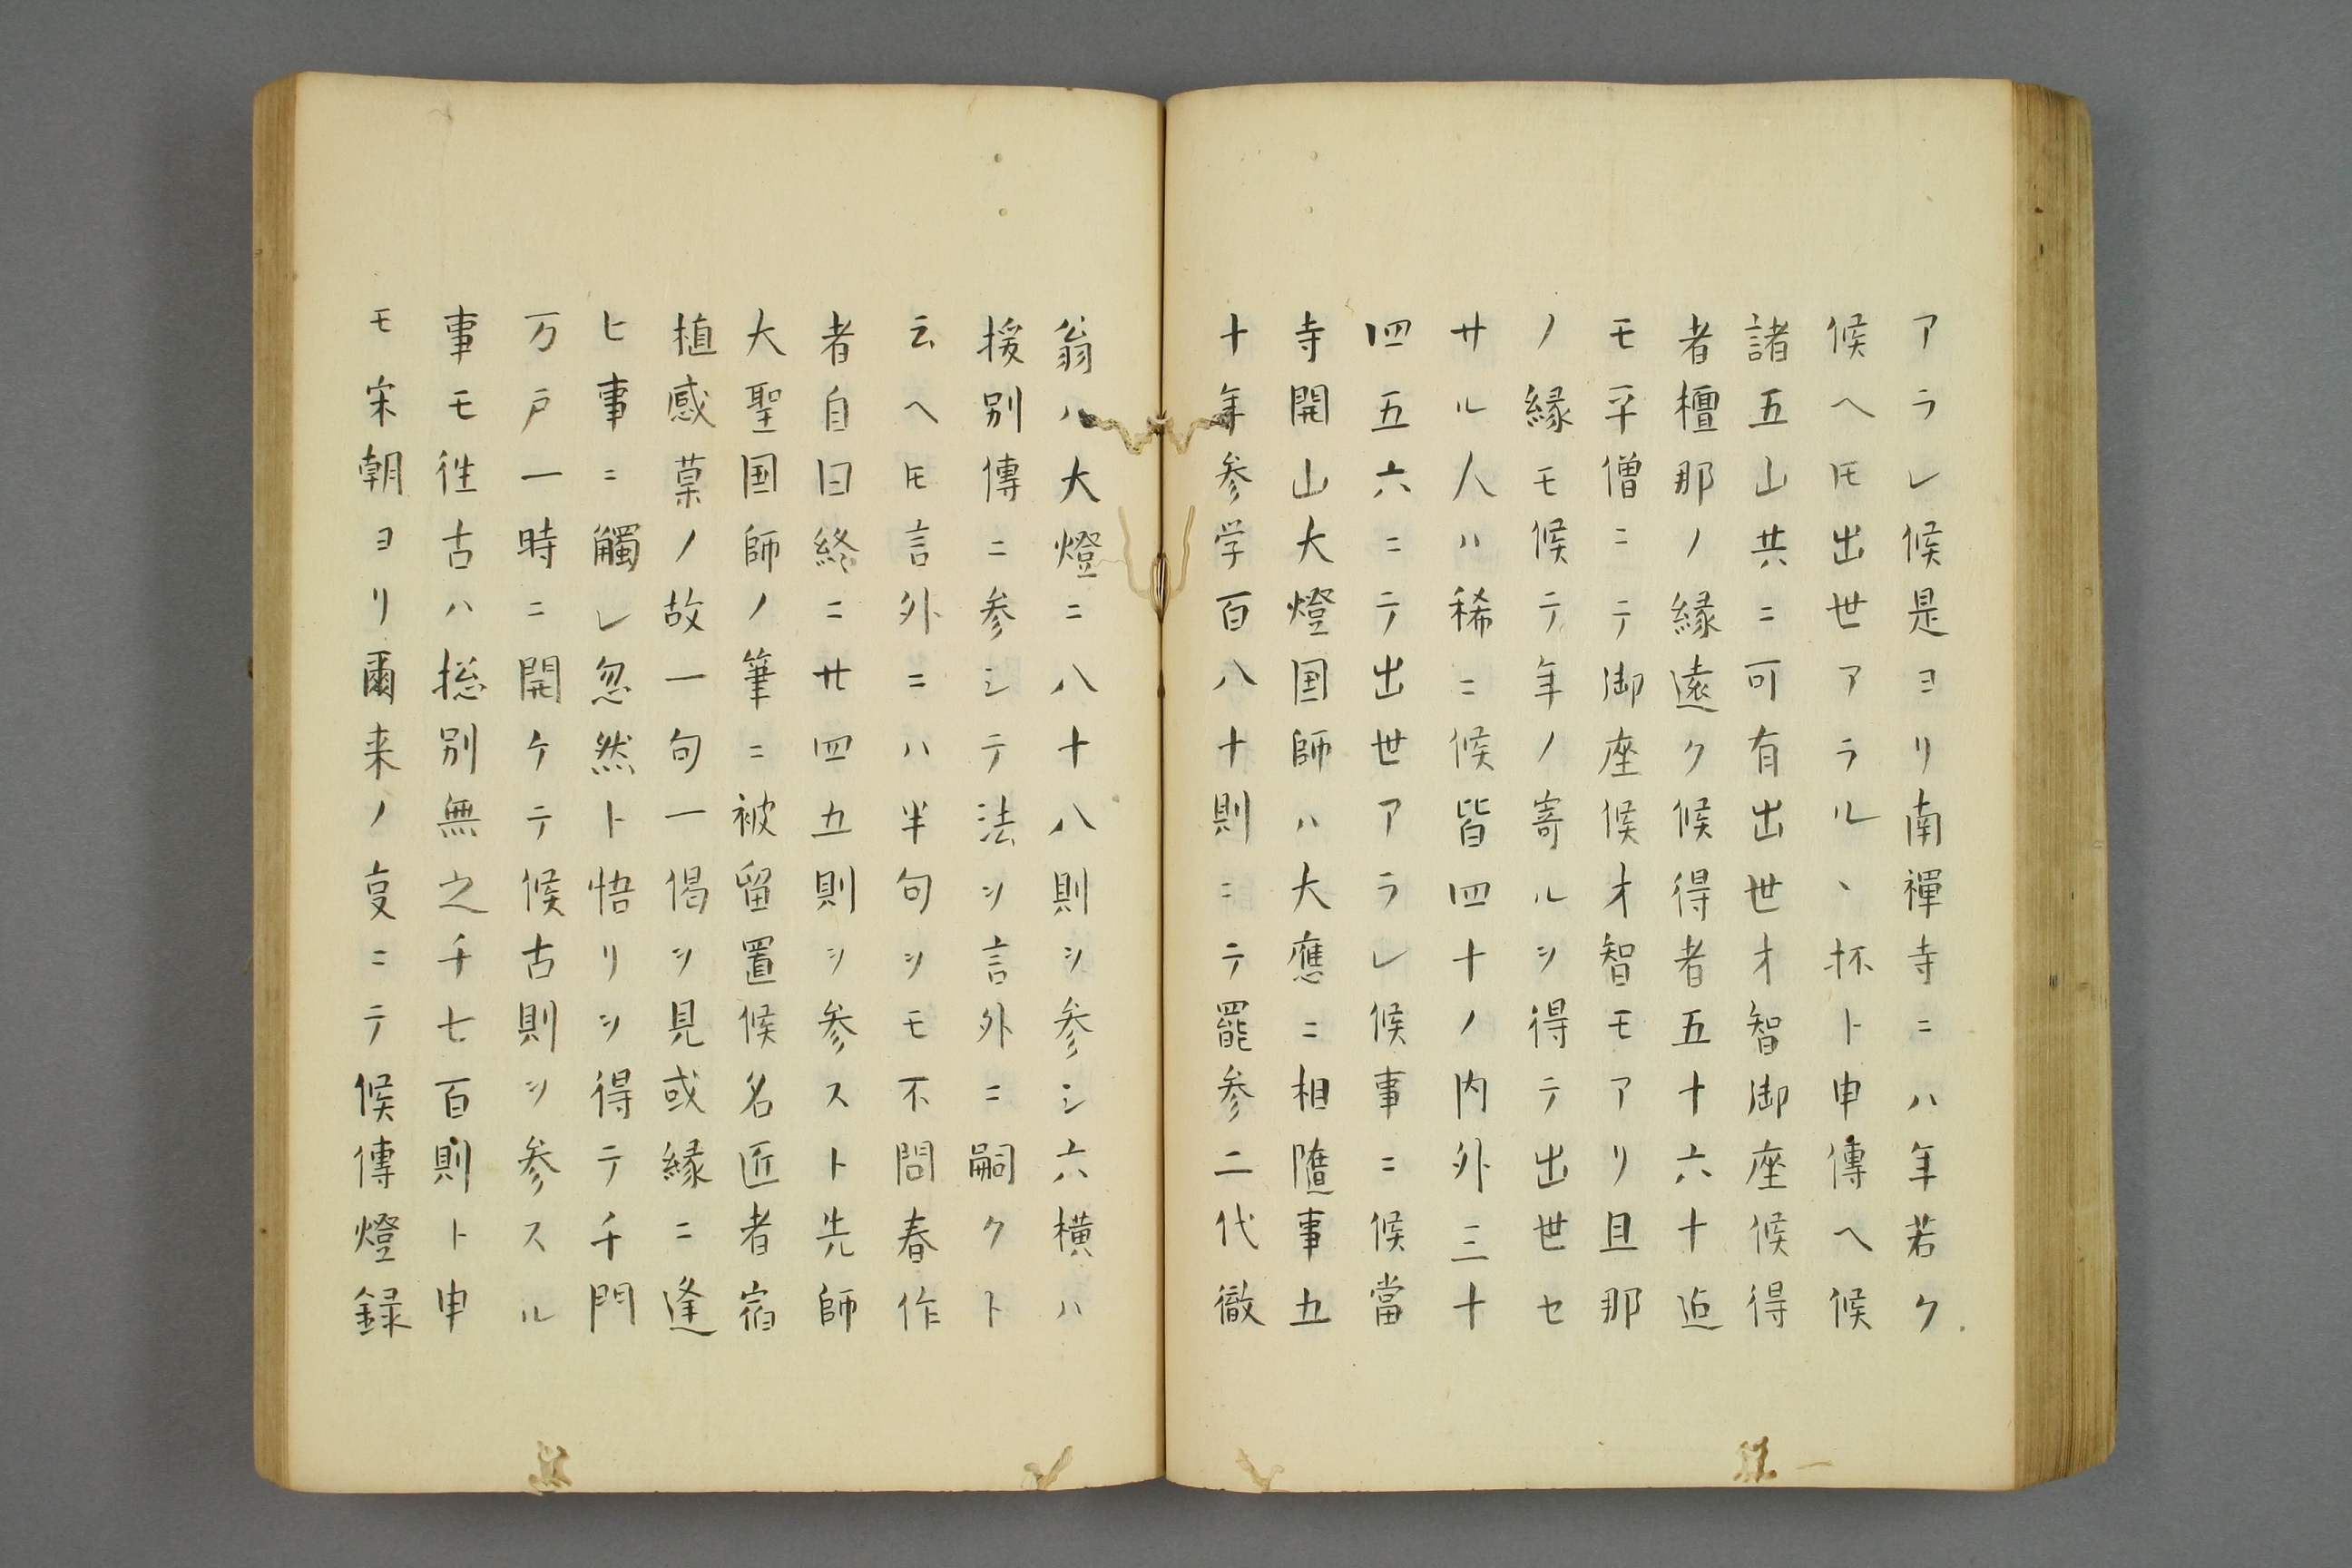 アラレ候是ヨリ南禅寺ニハ年若ク
候ヘ𪜈出世アラルヽ抔ト申傳ヘ候
諸五山共ニ可有出世才智御座候得
者檀那ノ縁遠ク候得者五十六十迠
モ平僧ニテ御座候才智モアリ且那
ノ縁モ候テ年ノ寄ルヲ得テ出世セ
サル人ハ稀ニ候皆四十ノ内外三十
四五六ニテ出世アラレ候事ニ候當
寺開山大燈国師ハ大應ニ相隨事五
十年参学百八十則ニテ罷参二代徹
翁ハ大燈ニ八十八則ヲ参シ六横ハ
援別傳ニ参シテ法ヲ言外ニ嗣クト
云ヘ𪜈言外ニハ半句ヲモ不問春作
者自曰終ニ廿四五則ヲ参スト先師
大聖国師ノ筆ニ被留置候名匠者宿
植感菓ノ故一句一偈ヲ見或縁ニ逢
ヒ事ニ觸レ忽然ト悟リヲ得テ千門
万戸一時ニ開ケテ候古則ヲ参スル
事モ徃古ハ捴別無之千七百則ト申
モ宋朝ヨリ爾来ノ㕝ニテ候傳燈録